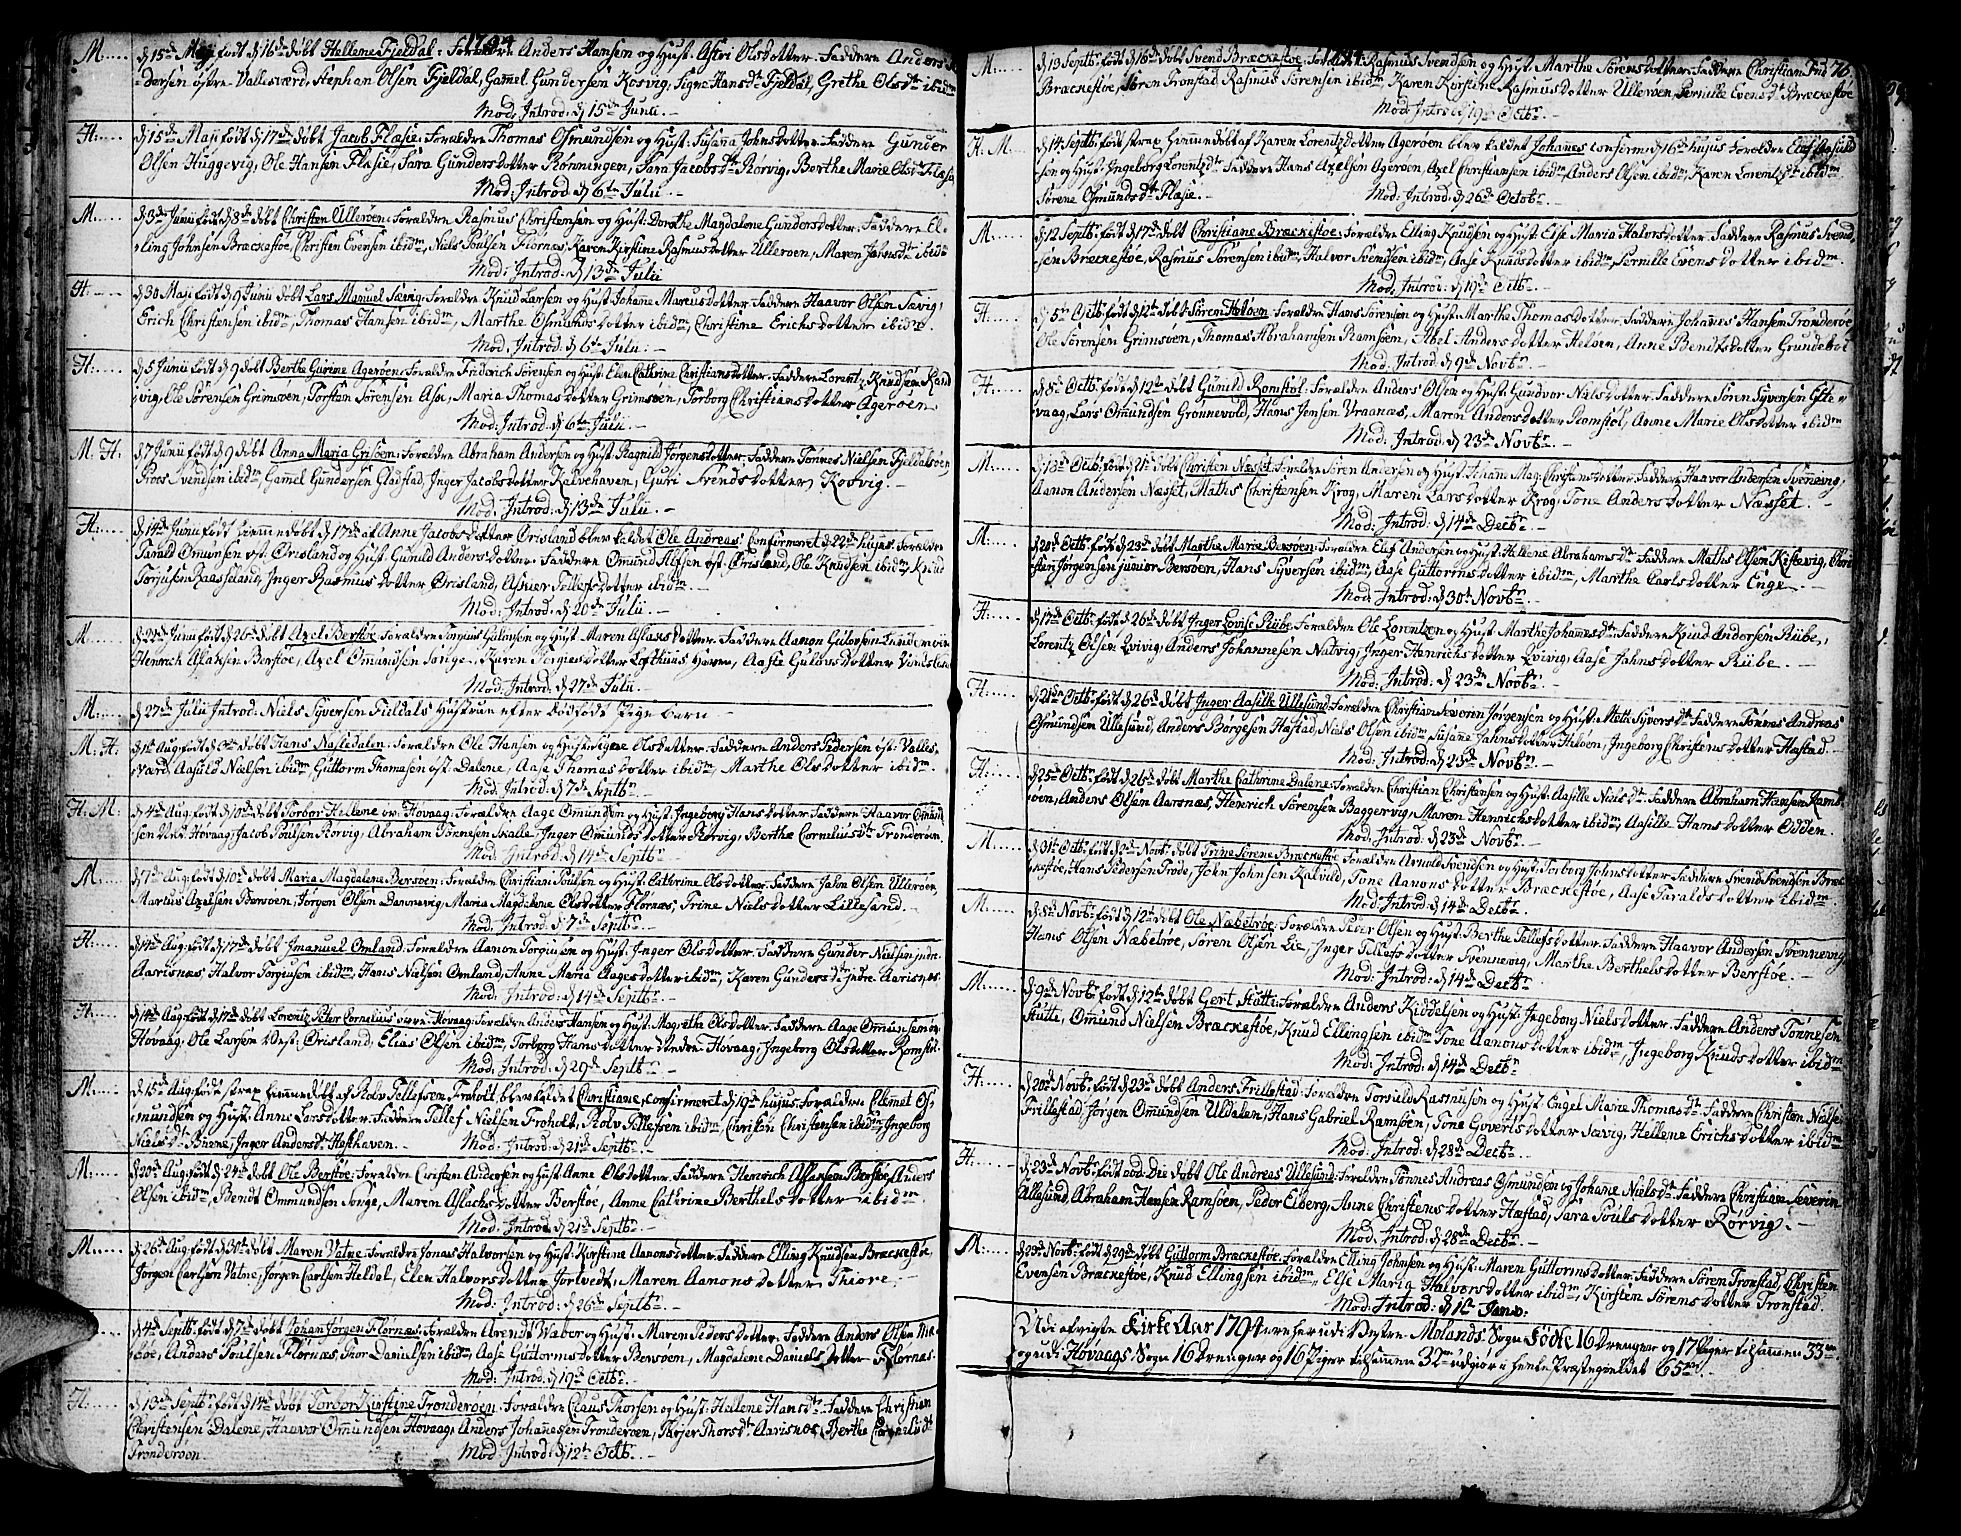 1794
M. d 15de Maji født d 16de døbt Hellene Fjeldal: Forældre Anders Hansen og Hust: Astri Olsdotter. Faddere Anders
dersen østre Vallesværd, Stephan Olsen Fjeldal, Gamel Gundersen Kosvig, Signe Hansdtr Fjeldal, Grethe Olsdtr ibidm
Mod: Introd: d 15de Junii.
H. d 15de Maji født d 17de døbt Jacob Flasie: Forældre Thomas Osmundsen og Hust: Susana Johnsdotter. Faddere Gunder
Olsen Huggevig, Ole Hansen Flasie, Sara Gundersdotter Rønningen, Sara Jacobsdtr Rørvig, Berthe Marie Olsdtr Flasie
Mod: Introd: d 6te Julii.
M. d 3de Junii født d 8de døbt Christen Ulleroen: Forældre Rasmus Christensen og Hust: Dorthe Magdalene Gundersdotter. Faddere El-
ling Johnsen Bræckestøe, Christen Evensen ibidm, Niels Poulsen Flornæs, Karen Kirstine Rasmusdotter Ulleroen, Maren Johnsdtr ibidm
Mod: Introd: d 13de Julii
H. d 30 Maji født d 9 Junii døbt Lars Manuel Sævig: Forældre Knud Larsen og Hust: Johane Marcusdotter. Faddere Haavor Olsen Sævig,
Erich Christensen ibidm, Thomas Hansen ibidm, Marthe Osmundsdotter ibidm, Christine Erichsdotter ibidm.
Mod: Introd: d 6te Julii.
H. d 5 Junii født d 9 døbt Berthe Gurine Ageroen: Forældre Friderich Sørensen og Hust: Elen Cathrine Christiansdotter. Faddere Lorentz Knudsen Rand
vig, Ole Sørensen Grimsøen, Torsten Sørensen Ase, Maria Thomasdotter Grimsøen, Torborg Christiansdotter Ageroen
Mod: Introd: d 6te Julii.
M. H. d 7 Junii født d 9 døbt Anna Maria Grisøen: Forældre Abraham Andersen og Hust: Ragnild Jørgensdotter. Faddere Tønnes Nielsen Fjeldalsøen,
Proos Svendsen ibidm, Gamel Gundersen Gladstad, Inger Jacobsdotter Kalvehaven, Guri Svendsdotter Kosvig.
Mod: Introd: d 13de Julii
H. d 14de Junii født hiemmedøbt d 17de af Anne Jacobsdotter Ørisland blev kaldet Ole Andreas: Confirmeret d 22de hujus. Forældre
Tarald Omunsen øst: Ørisland og Hust: Gunild Andersdotter. Faddere Omund Alfsen øst: Ørisland, Ole Knudsen ibidm, Knud
Torjusen Raaseland, Inger Rasmusdotter Ørisland, Asbier Tellefsdotter ibidm.
Mod: Introd: d 20de Julii.
M. d 22de Junii født d 26de døbt Axel Berstøe: Forældre Gulovsen og Hust: Maren Aslaksdotter. Faddere Aamon Gulovsen
Henrich Aslaksen Berstøe, Axel Omundsen Songe, Karen Tergiesdotter Lofthuus Haven, Aaste Gulovsdotter
Mod: Introd: d 27de Julii.
M. d 27de Julii Introd: Niels Syversen Fieldals Hustrue efter dødfødt Pigebarn
M. H. d 1ste Aug: født d døbt Hans Nastedalen: Forældre Ole Hansen og Hust: Signe Olsdotter. Faddere Anders Pedersen øst: Valles-
værd, Aasuld Nielsen ibidm, Guttorm Thomasen øst: Dalene, Aase Thomasdotter ibidm, Marthe Olsdotter ibidm.
Mod: Introd: d 7de Septbr.
H. M. d 4de Aug: født d 10de døbt Torbor Hellene øv: Hovaag: Forældre Aage Omundsen og Hust: Ingeborg Hansdotter. Faddere Haavor Omund
sen Hovaag, Jacob Poulsen Rørvig, Abraham Tønnesen Skalle, Inger Omundsdotter Rørvig, Berthe Corneliusdtr Tronderøen.
Mod: Introd: d 14de Septbr.
M. d 7de Aug: født d 10de døbt Maria Magdalene Bersøen: Forældre Christian Poulsen og Hust: Cathrine Olsdotter. Faddere John Olsen Ullerøen,
Martius Axelsen Bersøen, Jørgen Olsen Dannevig, Maria Magdalene Olsdotter Flornæs, Trine Nielsdotter Lillesand.
Mod: Introd: d 7de Septbr.
H. d 14de Aug: født d 17de døbt Imanuel Omland: Forældre Aamon Torgiusen og Hust: Inger Olsdotter. Faddere Gunder Nielsen indre
Aarisnæs, Halvor Torgiusen ibidm, Hans Nielsen Omland, Anne Maria Aagesdotter ibidm, Karen Gundersdtr indre Aarisnæs.
Mod: Introd: d 14de Septbr.
H. d 14de Aug: født d 17de døbt Lorentz Peter Cornelius Hovaag: Forældre Anders Hansen og Hust: Magrethe Olsdotter. Faddere Aage Omunsen
Hovaag, Ole Larsen Vest: Ørisland, Elias Olsen ibidm, Torborg Hansdotter Hovaag, Ingeborg Olsdotter Romstøl.
Mod: Introd: d 29de Septbr.
M. d 15de Aug: født strax hiemmedøbt af Rolv Tellefsen Froholt blev kaldet Christiane, confirmeret d 19de hujus: Forældre Clemet Os-
mundsen og Hust: Anne Larsdotter. Faddere Tellef Nielsen Froholt, Rolv Tellefsen ibidm, Christen Christensen ibidm, Ingeborg
Nielsdtr Buene, Inger Andersdtr Hesthaven. Mod: Introd: d 21de Septbr.
M. d 20de Aug: født d 24de døbt Ole Berstøe: Forældre Christen Andersen og Hust: Anne Olsdotter. Faddere Henrich Aslaksen Berstøe, Anders
Olsen ibidm, Bendt Ommundsen Songe, Maren Aslachsdotter Berstøe, Anne Cathrine Berthelsdotter ibidm.
Mod: Introd: d 21de Septbr.
M. d 26de Aug: født d 30te døbt Maren Vatne: Forældre Jonas Halvorsen og Hust: Kirstine Aanonsdotter. Faddere Elling Knudsen Bræckestøe,
Jørgen Carlsen Vatne, Jørgen Carlsen Heldal, Elen Halvorsdotter Jortvedt, Maren Aanonsdotter Thiore.
Mod: Introd: d 26de Septbr.
d 4de Septbr: født d 7de døbt Johan Jørgen Flornæs: Forældre Arendt Wabor og Hust: Maren Pedersdotter. Faddere Anders Olsen
bøe, Anders Poulsen Flornæs, Thor Danielsen ibidm, Aase Guttormsdotter Bersøen, Magdalene Danielsdotter Flornæs.
Mod: Introd: d 19de Octbr.
H. d 13de Septbr: født d 14de døbt Torbor Kirstine Tronderøen: Forældre Claus Thorsen og Hust: Hellene Hansdtr. Faddere Christian
Christensen Dalene, Haavor Omundsen Hovaag, Anders Johannesen Tronderøen, Thorsdtr Aarisnæs, Berthe Corneliidtr
Tronderøen. Mod: Introd: d 12te Octbr.
1794
76.
M. d 13 Septbr: født d 16de døbt Svend Bræckestøe: Forældre Rasmus Svendsen og Hust: Marthe Sørensdotter. Faddere Christian
Bræckestøe, Søren Tronstad, Rasmus Sørensen ibidm, Karen Kirstine Rasmusdotter Ulleroen, Pernille Evensdtr Bræckestøe
Mod: Introd: d 19de Octbr.
H. M. d 14 Septbr: født strax hiemmedøbt af Karen Lorentzdotter Agerøen blev kaldet Johanes confirm: d 16de hujus. Forældre Elef
sen og Hust: Ingeborg Lorentzdtr. Faddere Hans Axelsen Agerøen, Axel Christiansen ibidm, Anders Olsen ibidm, Karen Lorentzdtr ibidm
Sørene Osmundsdtr Flasie. Mod: Introd: d 26de Octobr.
M. d 12 Septbr: født d 17de døbt Christiane Bræckestøe: Forældre Elling Knudsen og Hust: Else Maria Halvorsdotter. Faddere Rasmus Svend-
sen Bræckestøe, Rasmus Sørensen ibidm, Halvor Svendsen ibidm, Aase Knudsdotter ibidm, Pernille Evensdotter ibidm.
Mod: Introd: d 19de Octbr.
H. d 5te Octbr: født d 12te døbt Søren Heløen: Forældre Hans Sørensen og Hust: Marthe Thomasdotter. Faddere Johannes Hansen Tronderøe,
Ole Sørensen Grimsøen, Thomas Abrahamsen Ramsøen, Abel Andersdotter Heløen, Anne Bendtsdotter Grundebol
Mod: Introd: d 9de Novbr.
H. d 8de Octbr: født d 12te døbt Gunuld Romstøl: Forældre Anders Olsen og Hust: Gundvor Nielsdotter. Faddere Søren Syversen Gitte-
vaag, Lars Omundsen Grønnevold, Hans Jensen Vraanæs, Maren Andersdotter Romstøl, Anne Marie Olsdotter ibidm
Mod: Introd: d 23de Novbr.
M. d 18de Octbr: født d 21de døbt Christen Næsset: Forældre Søren Andersen og Hust: Johann Mag: Christensdotter. Faddere Haavor Andersen Svennevig,
Aanon Andersen Næsset, Mathis Christensen Krog, Maren Larsdotter Krog, Tone Andersdotter Næsset.
Mod: Introd: d 14de Decbr.
M. d 20de Octbr: født d 23de døbt Marthe Marie Bersøen: Forældre Elef Andersen og Hust: Hellene Abrahamsdtr. Faddere Mathis Olsen Kistevig, Chri
sten Jørgensen junior Bersøen, Hans Syversen ibidm, Aase Guttormsdotter ibidm, Marthe Carlsdotter Enge.
Mod: Introd: d 30te Novbr.
H. d 17de Octbr: født d 26de døbt Inger Lovise Ribe: Forældre Ole Lorentzen og Hust: Marthe Johannesdtr. Faddere Knud Andersen Ribe,
Lorentz Olsen Qvivig, Anders Johannesen Natvig, Inger Henrichsdotter Qvivig, Aase Jahnsdotter Ribe.
Mod: Introd: d 23de Novbr.
H. d 21de Octbr: født d 26de døbt Inger Aasille Ullesund: Forældre Christian Severin Jørgensen og Hust: Mette Syversdtr. Faddere Tønnes Andreas
Osmundsen Ullesund, Anders Borgesen Hæstad, Niels Olsen ibidm, Susane Jahnsdotter Heløen, Ingeborg Christensdotter Hæstad.
Mod: Introd: d 23de Novbr.
H. d 25de Octbr: født d 26de døbt Marthe Cathrine Dalene: Forældre Christian Christensen og Hust: Aasille Nielsdtr. Faddere Abraham Hansen Rams-
øen, Anders Olsen Aarsnæs, Henrich Sørensen Baggervig, Maren Henrichsdotter ibidm, Aasille Hansdotter Odden.
Mod: Introd: d 23de Novbr.
M. d 31te Octbr: født d 2de Novbr: døbt Trine Sørene Bræckestøe: Forældre Arnold Svendsen og Hust: Torborg Johnsdotter. Faddere Svend Svendsen Bræc-
kestøe, Hans Pedersen Trøde, John Johnsen Kalvild, Tone Aanonsdotter Bræckestøe, Aase Taraldsdotter ibidm.
Mod: Introd: d 14de Decbr.
M. d 8de Novbr: født d 12te døbt Ole Næbetrøe: Forældre Peter Olsen og Hust: Berthe Tellefsdotter. Faddere Haavor Andersen Svennevig
Hans Olsen Næbetrøe, Søren Olsen Lie, Inger Tellefsdotter Svennevig, Marthe Berthelsdotter Berstøe.
Mod: Introd: d 14de Decbr.
M. d 9de Novbr: født d 12te døbt Gert Stutte: Forældre Anders Kiddelsen og Hust: Ingeborg Nielsdotter. Faddere Anders Tønnesen
Stutte, Omund Nielsen Bræckestøe, Knud Ellingsen ibidm, Tone Aanonsdotter ibidm, Ingeborg Knudsdotter ibidm
Mod: Introd: d 14de Decbr.
H. d 20de Novbr: født d 23de døbt Anders Frillestad: Forældre Torsuld Rasmusen og Hust: Engel Marie Thomasdtr. Faddere Christen Nielsen
Frillestad, Jørgen Omundsen Uldalen, Hans Gabriel Ramsøen, Tone Govertsdotter Sævig, Hellene Erichsdotter ibidm
Mod: Introd: d 28de Decbr.
H. d 23de Novbr: født eod: Die døbt Ole Andreas Ullesund: Forældre Tønnes Andreas Osmundsen og Johane Nielsdtr. Faddere Christian Severin
Ullesund, Abraham Hansen Ramsøen, Peder Elberg, Anne Christensdotter Hæstad, Sara Poulsdotter Rørvig.
Mod: Introd: d 28de Decbr.
M. d 23de Novbr: født d 29de døbt Guttorm Bræckestøe: Forældre Elling Johnsen og Hust: Maren Guttormsdotter. Faddere Søren Tronstad, Christen
Evensen Bræckestøe, Knud Ellingsen ibidm, Else Maria Halvorsdotter ibidm, Kirsten Sørensdotter Tronstad.
Mod: Introd: d 1ste Janv:
Udi afvigte Kirke Aar 1794 ere her udi Vestre Molands Sogn Fødte 16 Drenger og 17 Piger tilsammen 33
og udi Hovaags Sogn 16 Drenger og 16 Piger tilsammen 32 udgiør i heele Præstegieldet 65